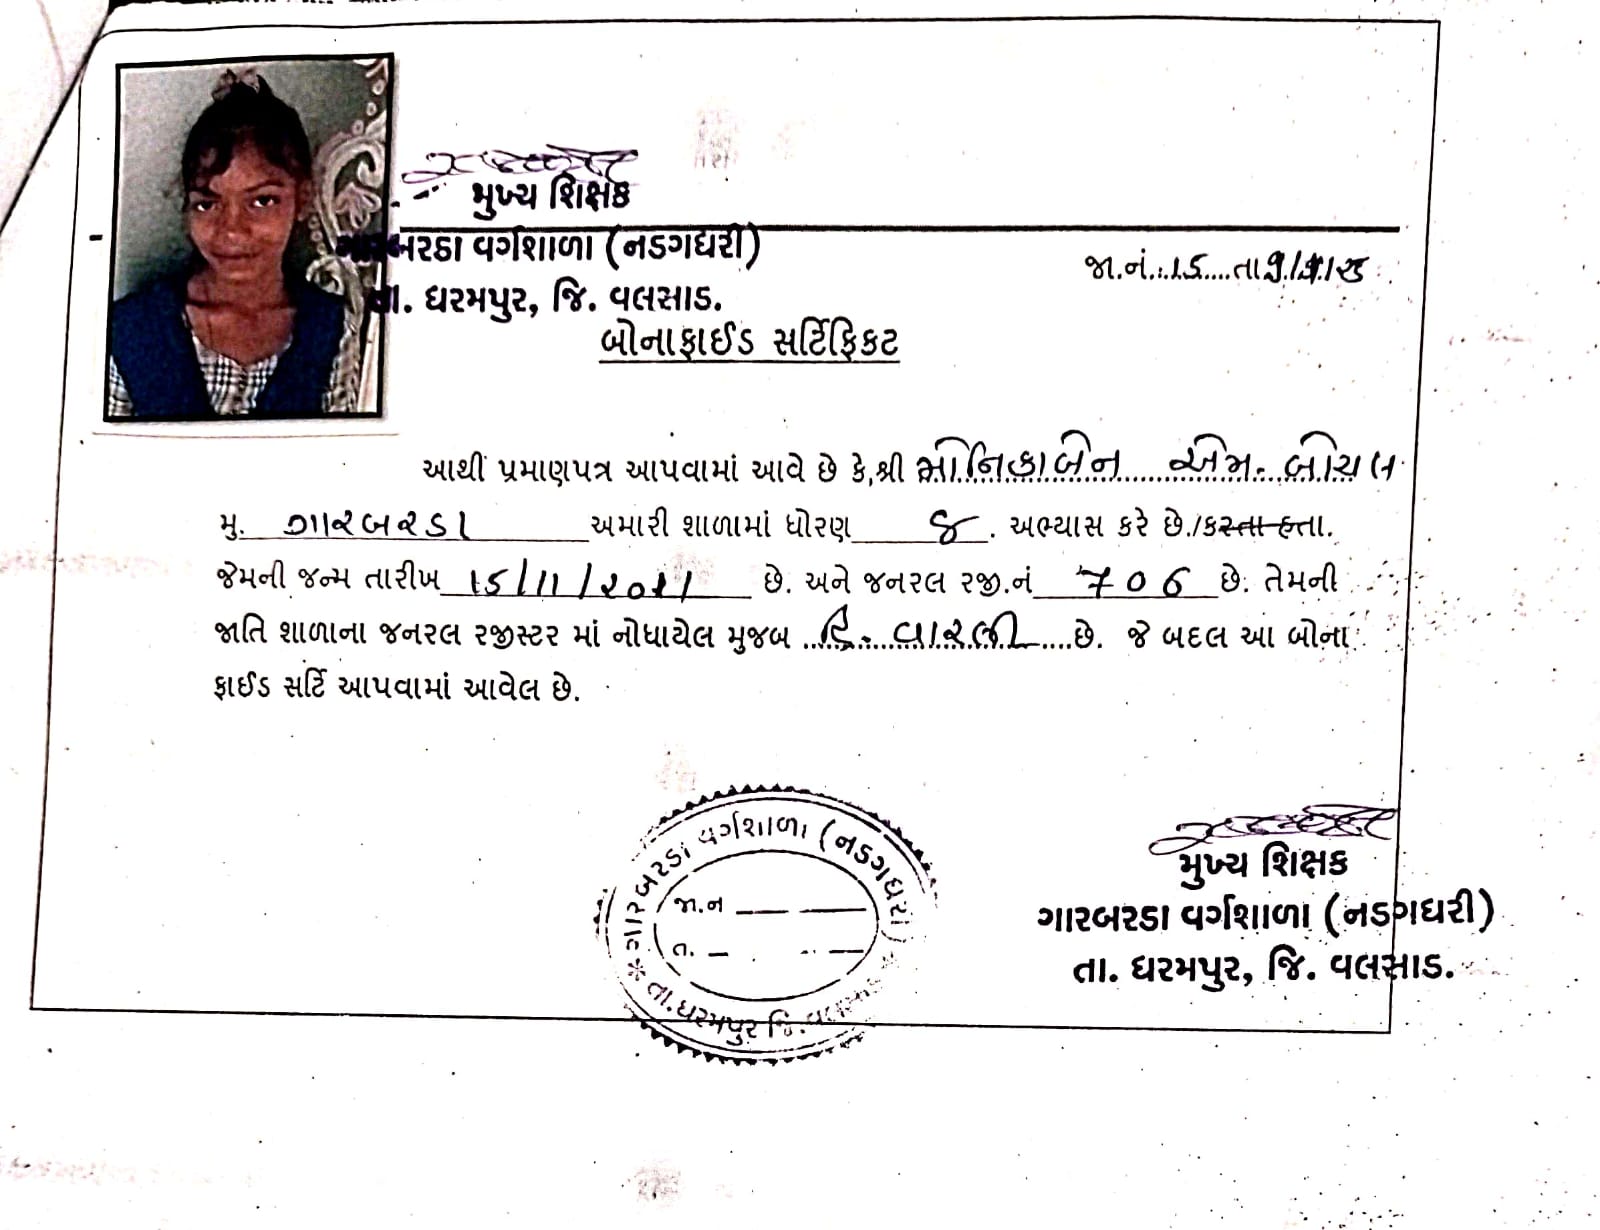 મુખ્ય શિક્ષક
ગારબરડા વર્ગશાળા (નડગધરી)
તા. ધરમપુર, જિ. વલસાડ.
જા.નં...15....તા
બોનાફાઈડ સર્ટિફિકટ
આથી પ્રમાણપત્ર આપવામાં આવે છે કે,શ્રી મોનિકાબેન એમ. બોયલ
મુ. ગારબરડા અમારી શાળામાં ધોરણ ૪. અભ્યાસ કરે છે./કરતા હતા.
જેમની જન્મ તારીખ 15/11/૨૦૧૧ છે. અને જનરલ રજી.નં 706 છે. તેમની
જાતિ શાળાના જનરલ રજીસ્ટર માં નોધાયેલ મુજબ હિ. વારલી છે. જે બદલ આ બોના
ફાઈડ સર્ટિ આપવામાં આવેલ છે.
ગારબરડા વર્ગશાળા (નડગધરી)
જા.ન
ત.
* તા.ધરમપુર જિ.વલસાડ *
મુખ્ય શિક્ષક
ગારબરડા વર્ગશાળા (નડગધરી)
તા. ધરમપુર, જિ. વલસાડ.